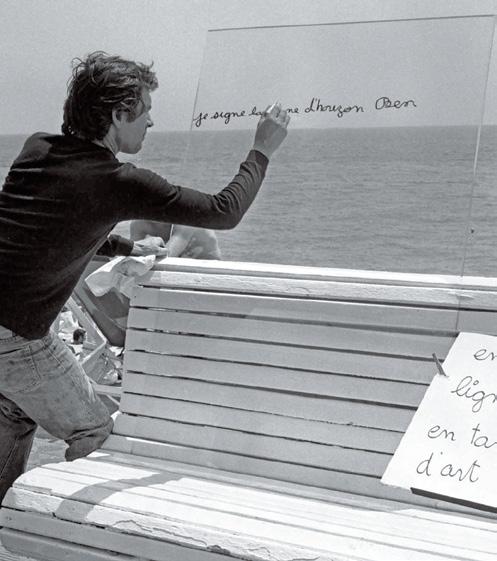 je signe la ne d'horizon Ben
en
lig
en ta
d'art